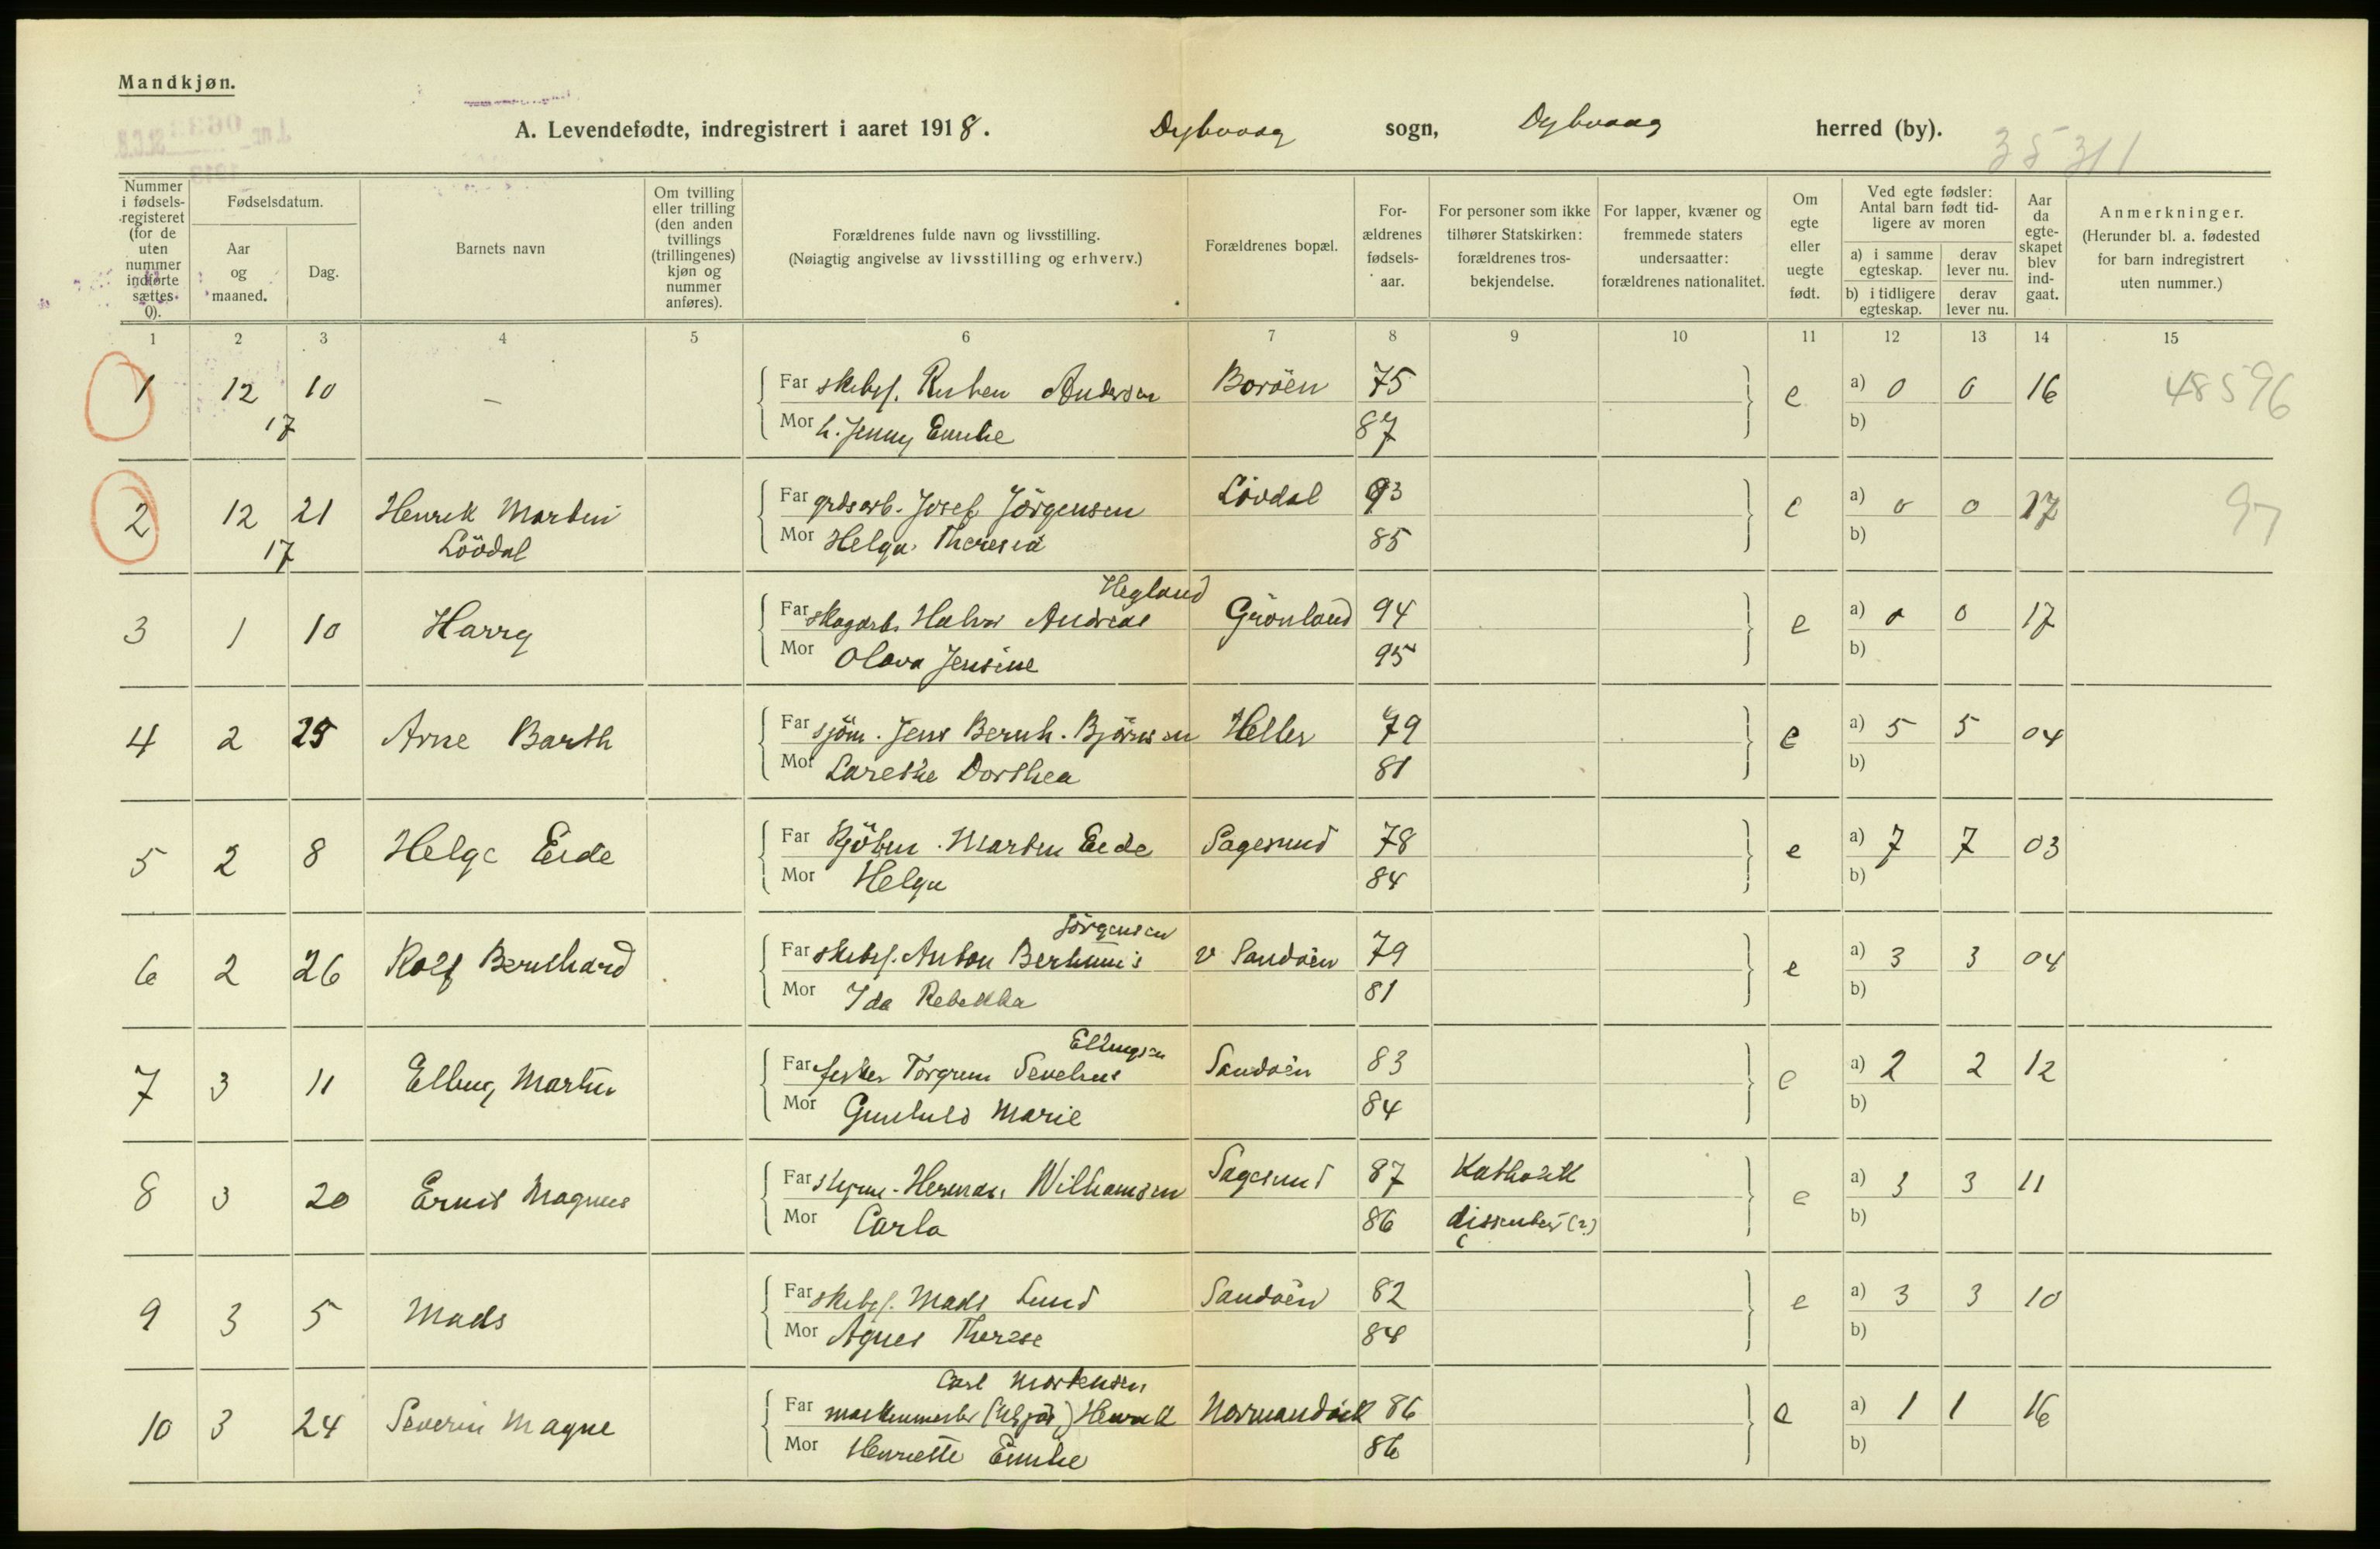 Mandkjøn.
A. Levendefødte, indregistrert i aaret 1918. Dybvaag sogn, Dybvaag herred (by).
35311
Nummer i fødsels-registeret (for de uten nummer indførte sættes 0).
Fødselsdatum.
Aar og maaned.
Dag.
Barnets navn
Om tvilling eller trilling (den anden tvillings (trillingenes) kjøn og nummer anføres).
Forældrenes fulde navn og livsstilling.
(Nøiagtig angivelse av livsstilling og erhverv.)
Forældrenes bopæl.
For-ældrenes fødsels-aar.
For personer som ikke tilhører Statskirken: forældrenes tros-bekjendelse.
For lapper, kvæner og fremmede staters undersaatter: forældrenes nationalitet.
Om egte eller uegte født.
Ved egte fødsler: Antal barn født tid-ligere av moren
a) i samme egteskap.
derav lever nu.
b) i tidligere egteskap.
derav lever nu.
Aar da egte-skapet blev ind-gaat.
Anmerkninger.
(Herunder bl. a. fødested for barn indregistrert uten nummer.)
1 2 3 4 5 6 7 8 9 10 11 12 13 14 15
1 12 10 — Far skibsf. Ruben Andersen Borøen 75 e a) 0 0 16 48596
17 Mor h. Jenny Emilie 87 b)
2 12 21 Henrik Martin Far grdsarb. Josef Jörgensen Lövdal 93 e a) 0 0 17 97
17 Lövdal Mor Helga Theresia 85 b)
Hegland
3 1 10 Harry Far skogarb. Halvor Andreas Grönland 94 e a) 0 0 17
Mor Olava Jensine 95 b)
4 2 25 Arne Barth Far sjöm. Jens Bernh. Björnsen Heller 79 e a) 5 5 04
Mor Dorthea 81 b)
5 2 8 Helge Eide Far Kjöbm. Martin Eide Sagesund 78 e a) 7 7 03
Mor Helga 84 b)
Jörgensen
6 2 26 Rolf Bernhard Far skibsf. Anton v Sandöen 79 e a) 3 3 04
Mor Ida Rebekka 81 b)
Ellingsen
7 3 11 Elling Martin Far fisker Torgrim Sandöen 83 e a) 2 2 12
Mor Gunhild Marie 84 b)
8 3 20 Magnus Far Herman Wilhamsen Sagesund 87 Katholik e a) 3 3 11
Mor Carla 86 dissenter (?) b)
9 3 5 Mads Far skibsf. Mads Lund Sandöen 82 e a) 3 3 10
Mor Agnes Therese 84 b)
Carl Mortensen
10 3 24 Severin Magne Far maskinmester Henrik Normandvik 86 e a) 1 1 16
Mor Henriette Emilie 86 b)